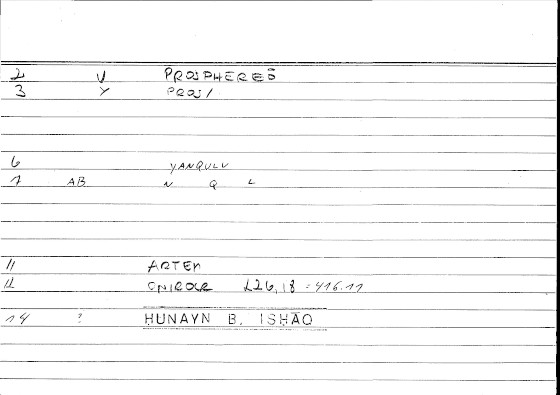 2 V PROSPHERES
3 Y PROS/
6 YANQULU
7 AB N Q L
11 ARTEM
12 L26,18 = 416.11
14 ? HUNAYN B. ISHAQ